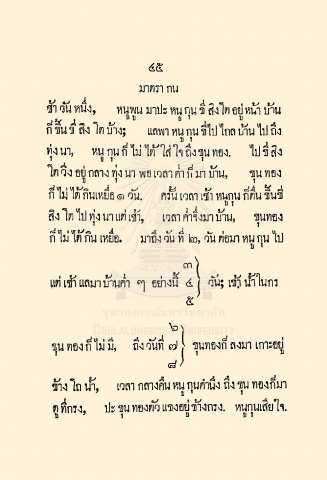 ๔๕
มาตรา กน
ช้า วัน หนึ่ง, หนูพูน มาปะ หนู กุน ขี่ สิงโต อยู่ หน้า บ้าน
ก็ ขึ้น ขี่ สิง โต บ้าง; แลพา หนู กุน ขี่ไป ไกล บ้าน ไป ถึง
ทุ่ง นา, หนู กุน ก็ ไม่ ได้ ใส่ ใจ ถึง ขุน ทอง. ไป ขี่ สิง
โต วิ่ง อยู่ กลาง ทุ่ง นา พอ เวลา ค่ำ ก็ มา บ้าน, ขุน ทอง
ก็ ไม่ ได้ กินเหยื่อ ๑ วัน. ครั้น เวลา เช้า หนูกุน ก็ตื่น ขึ้นขี่
สิง โต ไป ทุ่ง นา แต่ เช้า, เวลา ค่ำ จึ่ง มา บ้าน, ขุนทอง
ก็ ไม่ ได้ กิน เหยื่อ. มาถึง วัน ที่ ๒, วัน ต่อมา หนู กุน ไป
๓
แต่ เช้า แลมา บ้านค่ำ ๆ อย่างนี้ ๔ วัน; เช้า น้ำ ในกร
๕
๖
ขุน ทอง ก็ ไม่ มี, ถึง วันที่ ๗ ขุนทองก็ ลงมา เกาะอยู่
๘
ข้าง โถ น้ำ, เวลา กลางคืน หนู กุนคำนึง ถึง ขุน ทองก็มา
ดู ที่กรง, ปะ ขุน ทองตัว แขงอยู่ ข้างกรง. หนูกุนเสีย ใจ.
จุฬาลงกรณ์มหาวิทยาลัย
CHULALONGKORN UNIVERSITY